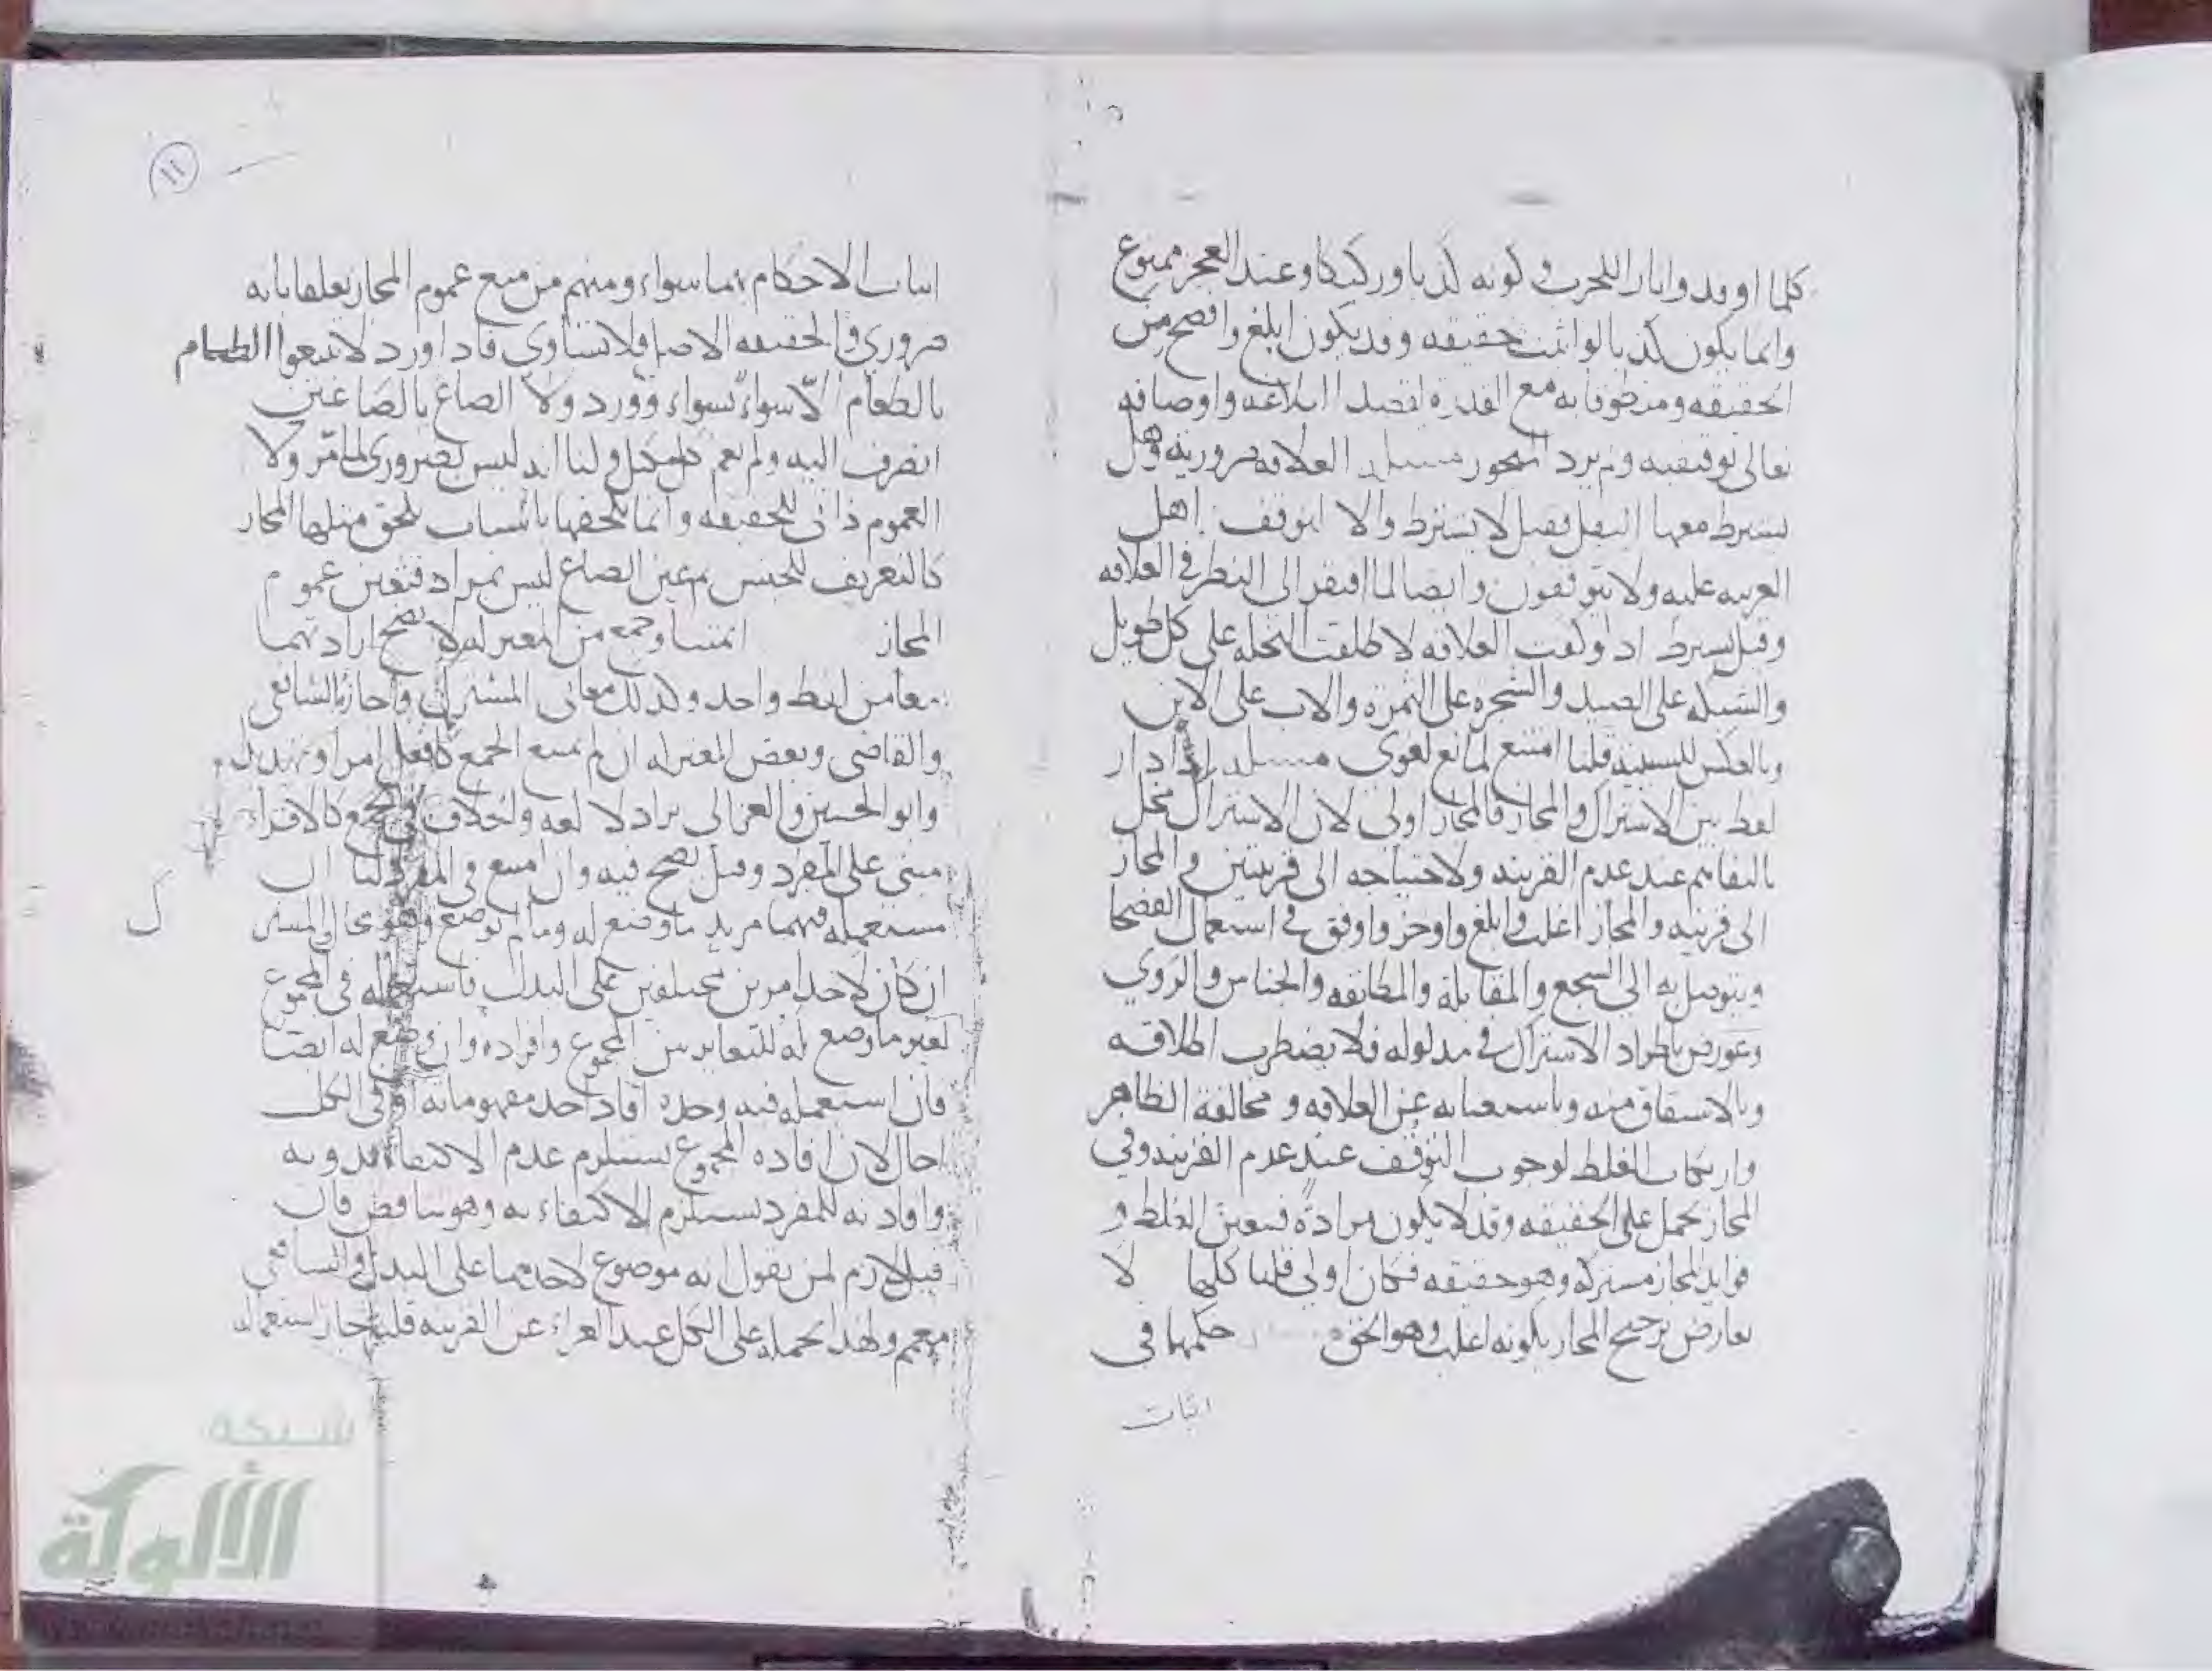 كلما اوقدوا نارا للحرب وكونه كذبا وركيكا وعند العجز ممنوع
وانما يكون كذبا لو اثبت حقيقه وقد يكون ابلغ وافصح من
الحقيقه ومنطوقا به مع القدره لقصد البلاغه واوصافه
تعالى توقيفيه ولم يرد المتجوز مسله العلاقه ضروريه وهل
يشترط معها النقل فقيل لا يشترط والا لتوقف اهل
العربيه عليه ولا يتوقفون وايضا لما افتقر الى النظر في العلاقه
وقيل يشترط اذ لو كفت العلاقه لاطلقت النخله على كل طويل
والشبكه على الصيد والشجره على الثمره والاب على الابن
وبالعكس للسببيه قلنا امتنع لمانع لغوى مسله اذا دار
لفظ بين الاشتراك والمجاز فالمجاز اولى لان الاشتراك مخل
بالتفاهم عند عدم القرينه ولاحتياجه الى قرينتين والمجاز
الى قرينه والمجاز اغلب وابلغ واوجز واوفق في استعمال الفصحا
ويتوصل به الى السجع والمقابلة والمطابقه والجناس والروي
وعورض باطراد الاشتراك في مدلوله فلا يضطرب اطلاقه
وبالاشتقاق منه وباستغنايه عن العلاقه ومخالفة الظاهر
وارتكاب الغلط لوجوب التوقف عند عدم القرينه وفي
المجاز يحمل على الحقيقه وقد لا يكون مرادة فيتعين الغلط و
فوايد المجاز مشتركه وهو حقيقه فكان اولى قلنا كلها لا
تعارض ترجيح المجاز بكونه اغلب وهو الحق حكمها في
اثبات
١١
اثبات الاحكام بهما سواء ومنهم من منع عموم المجاز تعلقا بانه
ضروري والحقيقه الاصل فلا تتساوى فاذا ورد لا تبيعوا الطعام
بالطعام الا سواء بسواء وورد ولا الصاع بالصاعين
انصرف اليه ولم يعم كل مكيل ولنا انه ليس بضروري لما مر ولا
العموم ذاتى للحقيقه وانما يلحقها باسباب يلحق مثلها المجاز
كالتعريف للجنس بعين الصاع ليس بمراد فتعين عموم
المجاز ائمتنا وجمع من المعتزله لا يصح ارادتهما
معا من لفظ واحد وكذلك معانى المشترك واجازه الشافعى
والقاضى وبعض المعتزله ان لم يمنع الجمع كافعل امرا وتهديدا
وابو الحسين والغزالى يراد لا لغه والخلاف في الجمع كالاقراء
مبنى على المفرد وقيل يصح فيه وان امتنع في المفرد لنا ان
مستعمله فيهما مريد ما وضع له وما لم يوضع وهو محال والمشترك
ان كان لاحد امرين مختلفين على البدل فاستعماله في المجموع
لغير ما وضع له للتغاير بين المجموع وافراده وان وضع له ايضا
فان استعمله فيه وحده افاد احد مفهوماته او في الكل
احال لان افاده المجموع يستلزم عدم الاكتفاء بدونه
وافادته للمفرد يستلزم الاكتفاء به وهو تناقض فان
قيل لازم لمن يقول انه موضوع لاحدهما على البدل والشافعى
معمم ولهذا يحمله على الكل عند العراء عن القرينه قلنا جاز استعماله
شبكة
الألوكة